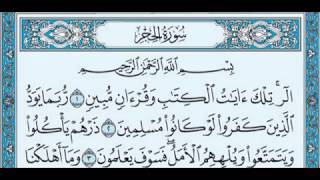 سُورَةُ الحِجْرِ
بِسْمِ اللَّهِ الرَّحْمَٰنِ الرَّحِيمِ
الٓرۚ تِلْكَ ءَايَٰتُ ٱلْكِتَٰبِ وَقُرْءَانٍ مُّبِينٍ ١ رُّبَمَا يَوَدُّ
ٱلَّذِينَ كَفَرُوا۟ لَوْ كَانُوا۟ مُسْلِمِينَ ٢ ذَرْهُمْ يَأْكُلُوا۟
وَيَتَمَتَّعُوا۟ وَيُلْهِهِمُ ٱلْأَمَلُ فَسَوْفَ يَعْلَمُونَ ٣ وَمَآ أَهْلَكْنَا